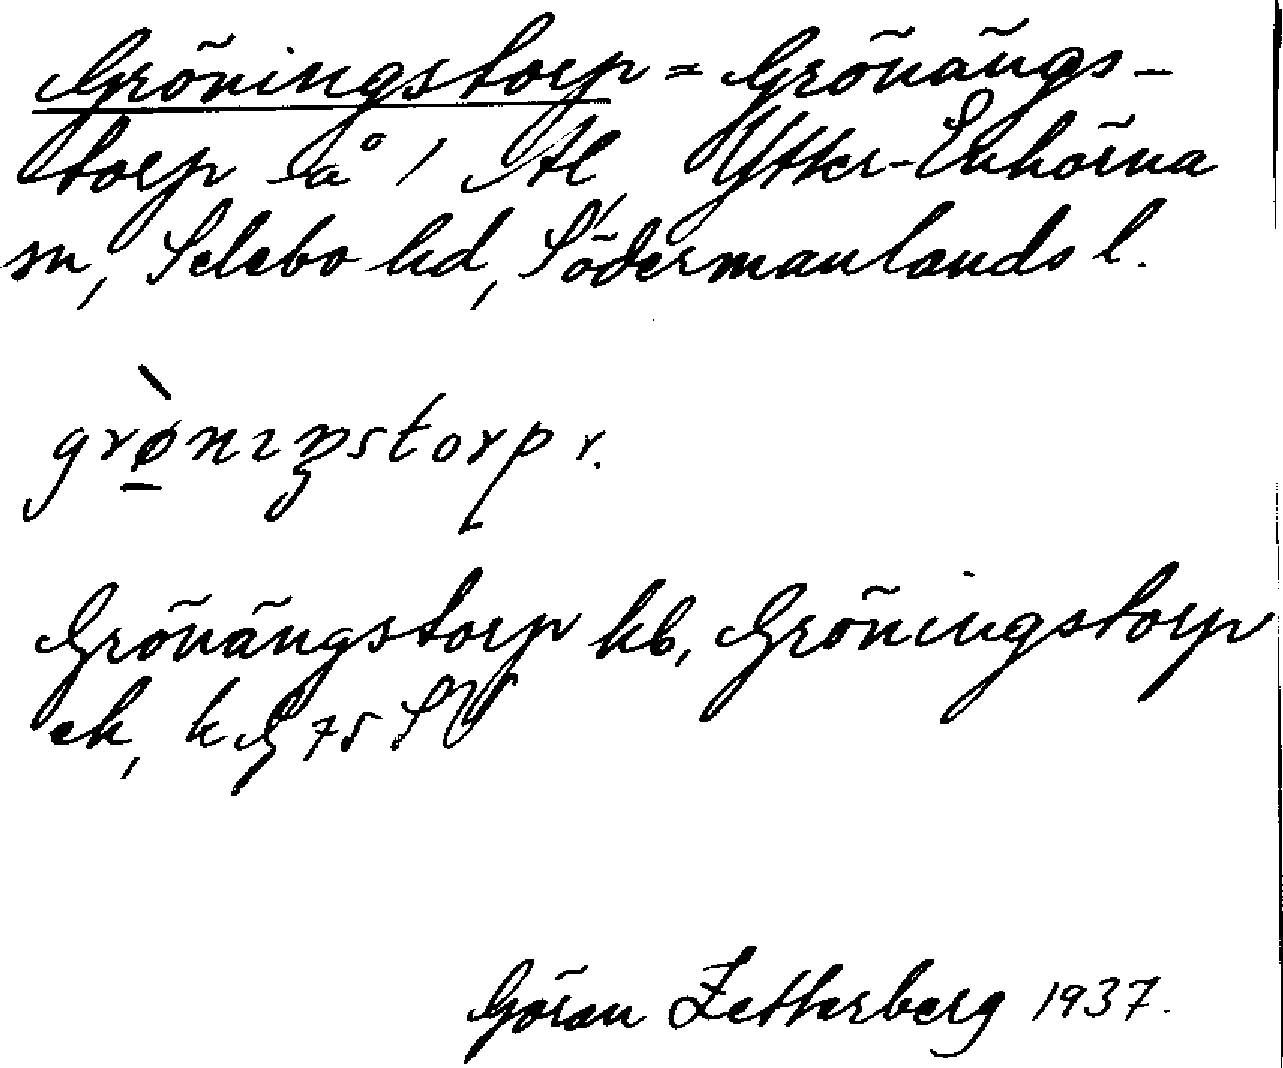 Gröningstorp = Grönängs-
torp å 1 Stl, Ytter-Enhörna
sn, Selebo hd, Södermanlands l.
grø̀nıŋstorp r.
Grönängstorp kb, Gröningstorp
ek, k G 75 SV
Göran Zetterberg 1937.